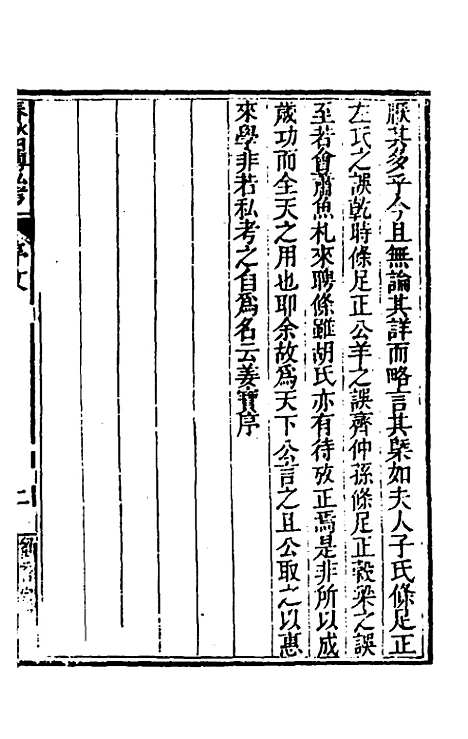 厭其多乎今且無論其詳而略言其槩如夫人子氏條足正
左氏之誤乾時條足正公羊之誤齊仲孫條足正穀梁之誤
至若會蕭魚札來聘條雖胡氏亦有待攷正焉是非所以成
歲功而全天之用也耶余故爲天下公言之且公取之以惠
來學非若私考之自爲名云姜寶序
序文
二